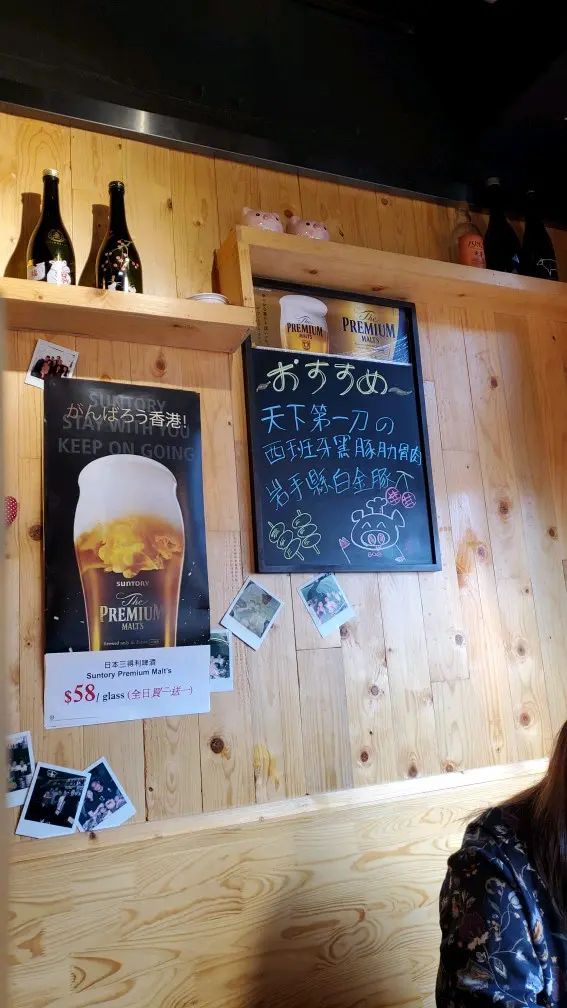 SUNTORY
がんばろう香港!
STAY WITH YOU
KEEP ON GOING
SUNTORY
The
PREMIUM
MALT'S
日本三得利啤酒
Suntory Premium Malt's
$58/ glass (全日買二送一)
The
PREMIUM
MALT'S
The
PREMIUM
MALT'S
おすすめ
天下第一刀の
西班牙黑豚肋骨肉
岩手縣白金豚